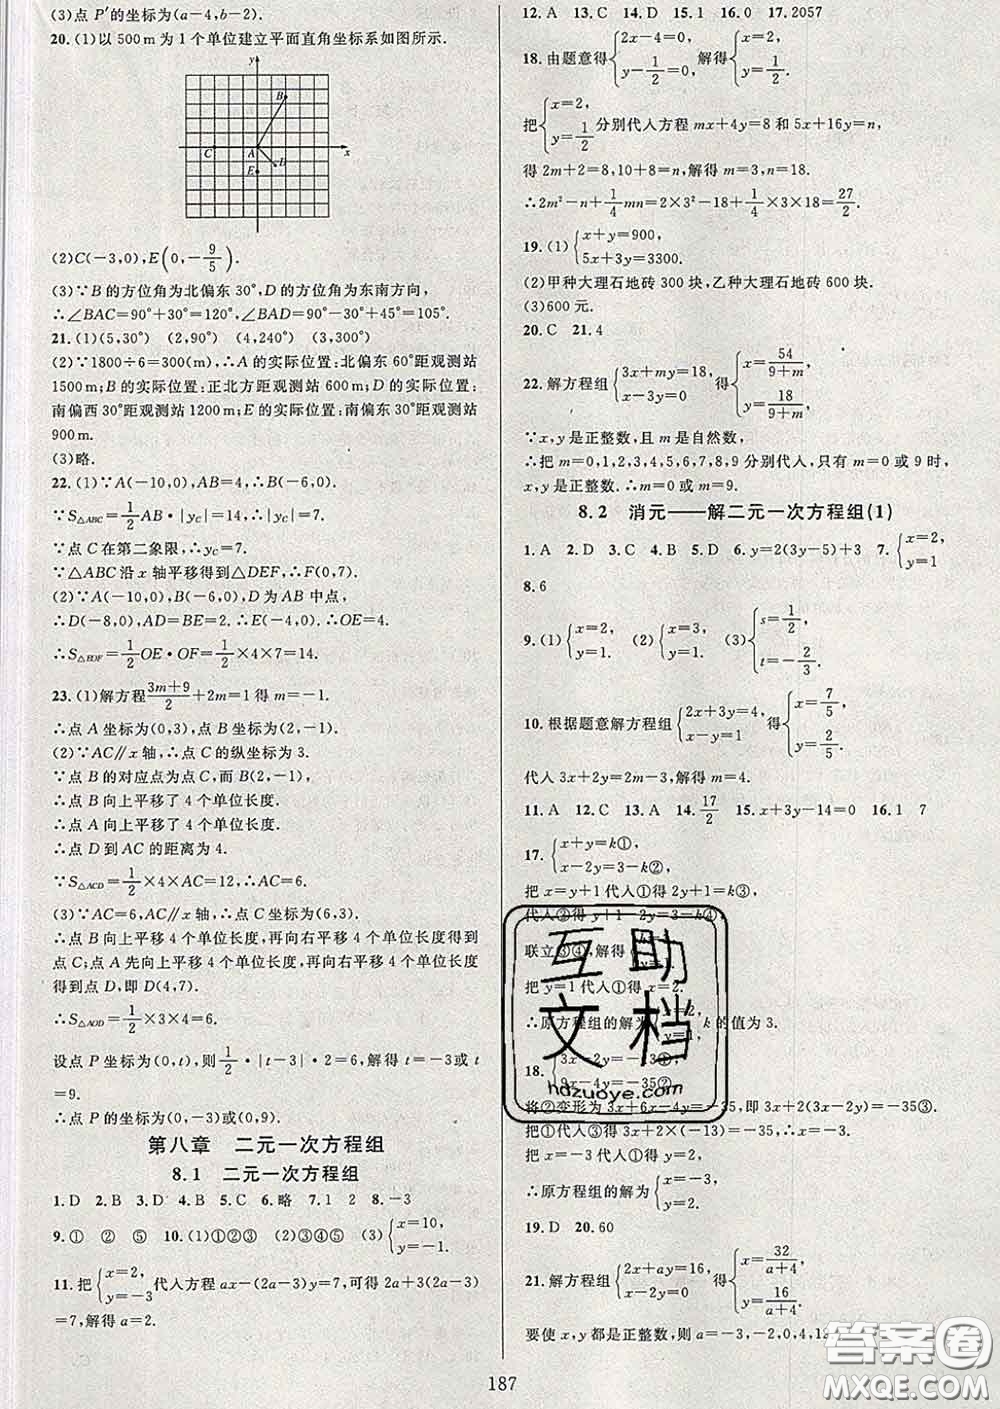 (3)点 P′的坐标为(a−4,b−2).
20.(1)以 500 m 为 1 个单位建立平面直角坐标系如图所示.
y
B
C A x
D
E
(2)C(−3,0),E(0,−9/5).
(3)∵B 的方位角为北偏东 30°,D 的方位角为东南方向,
∴∠BAC=90°+30°=120°,∠BAD=90°−30°+45°=105°.
21.(1)(5,30°) (2,90°) (4,240°) (3,300°)
(2)∵1800÷6=300(m),∴A 的实际位置:北偏东 60°距观测站
1500 m;B 的实际位置:正北方距观测站 600 m;D 的实际位置:
南偏西 30°距观测站 1200 m;E 的实际位置:南偏东 30°距观测站
900 m.
(3)略.
22.(1)∵A(−10,0),AB=4,∴B(−6,0).
∵S△ABC=1/2 AB·|yC|=14,∴|yC|=7.
∵点 C 在第二象限,∴yC=7.
∵△ABC 沿 x 轴平移得到△DEF,∴F(0,7).
(2)∵A(−10,0),B(−6,0),D 为 AB 中点,
∴D(−8,0),AD=BE=2.∴E(−4,0).∴OE=4.
∴S△EOF=1/2 OE·OF=1/2×4×7=14.
23.(1)解方程(3m+9)/2+2m=1 得 m=−1.
∴点 A 坐标为(0,3),点 B 坐标为(2,−1).
(2)∵AC∥x 轴,∴点 C 的纵坐标为 3.
∵点 B 的对应点为点 C,而 B(2,−1),
∴点 B 向上平移了 4 个单位长度.
∴点 A 向上平移了 4 个单位长度.
∴点 D 到 AC 的距离为 4.
∵S△ACD=1/2×4×AC=12,∴AC=6.
(3)∵AC=6,AC∥x 轴,∴点 C 坐标为(6,3).
∴点 B 向上平移 4 个单位长度,再向右平移 4 个单位长度得到
点 C;点 A 先向上平移 4 个单位长度,再向右平移 4 个单位长度
得到点 D,即 D(4,7).
∴S△AOD=1/2×3×4=6.
设点 P 坐标为(0,t),则1/2·|t−3|·2=6,解得 t=−3或 t
=9.
∴点 P 的坐标为(0,−3)或(0,9).
第八章 二元一次方程组
8.1 二元一次方程组
1.D 2.B 3.D 4.B 5.C 6.略 7.1 2 8.−3
9.① ② ⑤ 10.(1)①②③ (2)③④⑤ (3){x=10, y=−1.
11.把{x=2, y=−3 代入方程 ax−(2a−3)y=7,可得 2a+3(2a−3)
=7,解得 a=2.
12.A 13.C 14.D 15.1 16.0 17.2057
18.由题意得{2x−4=0, y−1/2=0, 解得{x=2, y=1/2.
把{x=2, y=1/2 分别代入方程 mx+4y=8 和 5x+16y=n,
得 2m+2=8,10+8=n,解得 m=3,n=18.
∴2m²−n+1/4 mn=2×3²−18+1/4×3×18=27/2.
19.(1){x+y=900, 5x+3y=3300.
(2)甲种大理石地砖 300 块,乙种大理石地砖 600 块.
(3)600 元.
20.C 21.4
22.解方程组{3x+my=18, x−3y=0 得{x=54/(9+m), y=18/(9+m).
∵x,y 是正整数,且 m 是自然数,
∴把 m=0,1,2,3,4,5,6,7,8,9 分别代入,只有 m=0 或 9 时,
x,y 是正整数.∴m=0 或 m=9.
8.2 消元——解二元一次方程组(1)
1.A 2.D 3.C 4.B 5.D 6.y=2(3y−5)+3 7.{x=2, y=1
8.6
9.(1){x=2, y=1. (2){x=3, y=1. (3){s=1/2, t=−2/3.
10.根据题意解方程组{2x+3y=4, x−y=1 得{x=7/5, y=2/5.
代入 3x+2y=2m−3,解得 m=4.
11.A 12.C 13.A 14.17/2 15.x+3y−14=0 16.1 7
17.{x+y=k①, x−2y=3−k②,
把 x=y+1 代入①得 2y+1=k③,
代入②得 y+1−2y=3−k④,
联立③④,解得{k=3, y=1.
把 y=1 代入①得 x=2.
∴原方程组的解为 y=1, k 的值为 3.
18.{3x−2y=−13①, 9x−4y=−35②,
将②变形为 3x+6x−4y=−35,即 3x+2(3x−2y)=−35③.
把①代入③得 3x+2×(−13)=−35,∴x=−3.
把 代入①得 y=2.
∴原方程组的解为{x=−3, y=2.
19.D 20.60
21.解方程组{2x+ay=16, x−2y=0 得{x=32/(a+4), y=16/(a+4).
要使 x,y 都是正整数,则 a=−3,−2,0,4,12
187
互助文档
hdzuoye.com
答案圈
MXQE.COM